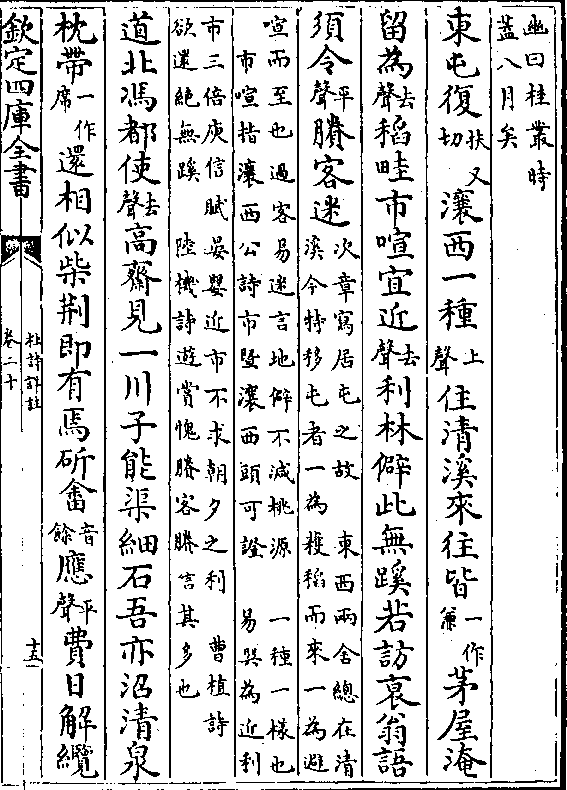 幽曰桂叢時
蓋八月矣
東屯復扶又切瀼西一種上聲住清溪來往皆一作兼茅屋淹
留為去聲稻畦市喧宜近去聲利林僻此無蹊若訪衰翁語
須令平聲賸客迷次章寫居屯之故 東西兩舍總在清
溪今特移屯者一為穫稻而來一為避
喧而至也過客易迷言地僻不減桃源 一種一様也
市喧指瀼西公詩市暨瀼西頭可證 易巽為近利
市三倍庾信賦晏嬰近市不求朝夕之利 曹植詩
欲還絶無蹊 陸機詩遊賞愧賸客賸言其多也
道北馮都使去聲高齋見一川子能渠細石吾亦沼清泉
枕帶一作席還相似柴荆即有焉斫畬音餘應平聲費日解纜
欽定四庫全書
杜詩詳註
卷二十
十五